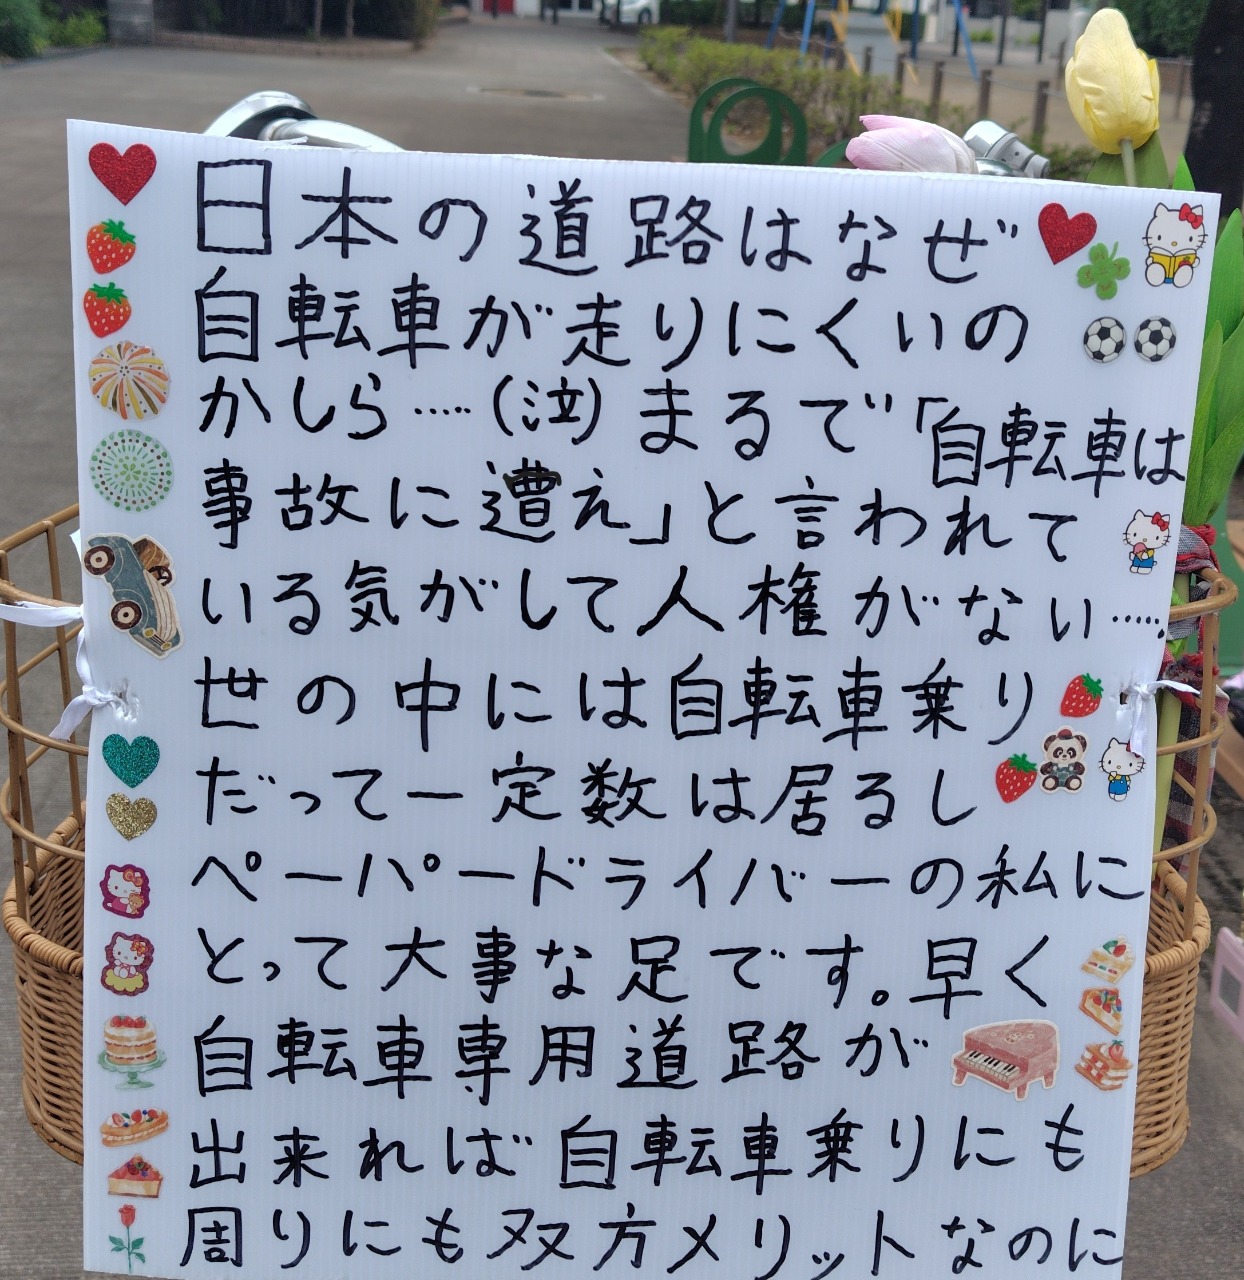 日本の道路はなぜ
自転車が走りにくいの
かしら……(泣)まるで「自転車は
事故に遭え」と言われて
いる気がして人権がない……
世の中には自転車乗り
だって一定数は居るし
ペーパードライバーの私に
とって大事な足です。早く
自転車専用道路が
出来れば自転車乗りにも
周りにも双方メリットなのに